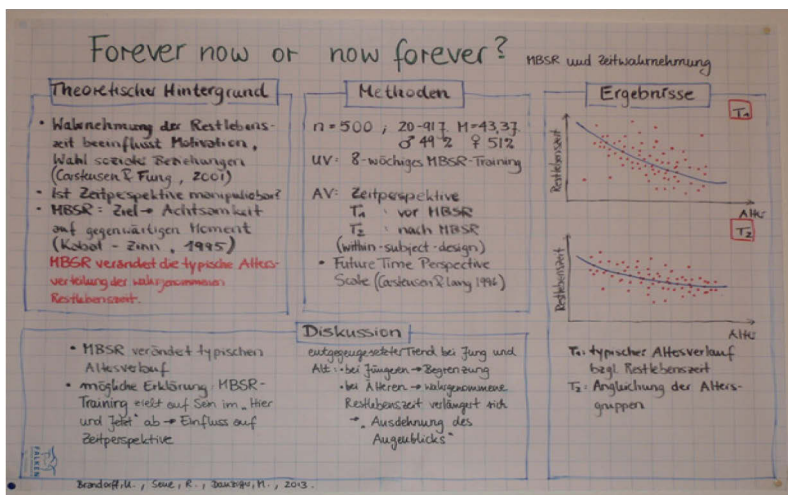 Forever now or now forever?
MBSR und Zeitwahrnehmung
Theoretischer Hintergrund
• Wahrnehmung der Restlebens-
zeit beeinflusst Motivation,
Wahl sozialer Beziehungen
(Carstensen & Fung, 2001)
• Ist Zeitperspektive manipulierbar?
• MBSR: Ziel → Achtsamkeit
auf gegenwärtigen Moment
(Kabat-Zinn, 1995)
MBSR verändert die typische Alters-
verteilung der wahrgenommenen
Restlebenszeit.
Methoden
n = 500, 20-91J. M=43,3J.
♂ 49% ♀ 51%
UV: 8-wöchiges MBSR-Training
AV: Zeitperspektive
T1 vor MBSR
T2 nach MBSR
(within-subject-design)
• Future Time Perspective
Scale (Carstensen & Lang 1996)
Ergebnisse
T1
Restlebenszeit
Alter
T2
Restlebenszeit
Alter
T1: typischer Altersverlauf
bzgl. Restlebenszeit
T2: Angleichung der Alters-
gruppen
Diskussion
• MBSR verändert typischen
Altersverlauf
• mögliche Erklärung: MBSR-
Training zielt auf Sein im "Hier
und Jetzt" ab → Einfluss auf
Zeitperspektive
entgegengesetzter Trend bei Jung und
Alt: • bei Jüngeren → Begrenzung
• bei Älteren → wahrgenommene
Restlebenszeit verlängert sich
→ "Ausdehnung des
Augenblicks"
FALKEN
Brandorff, U., R., M., 2013.